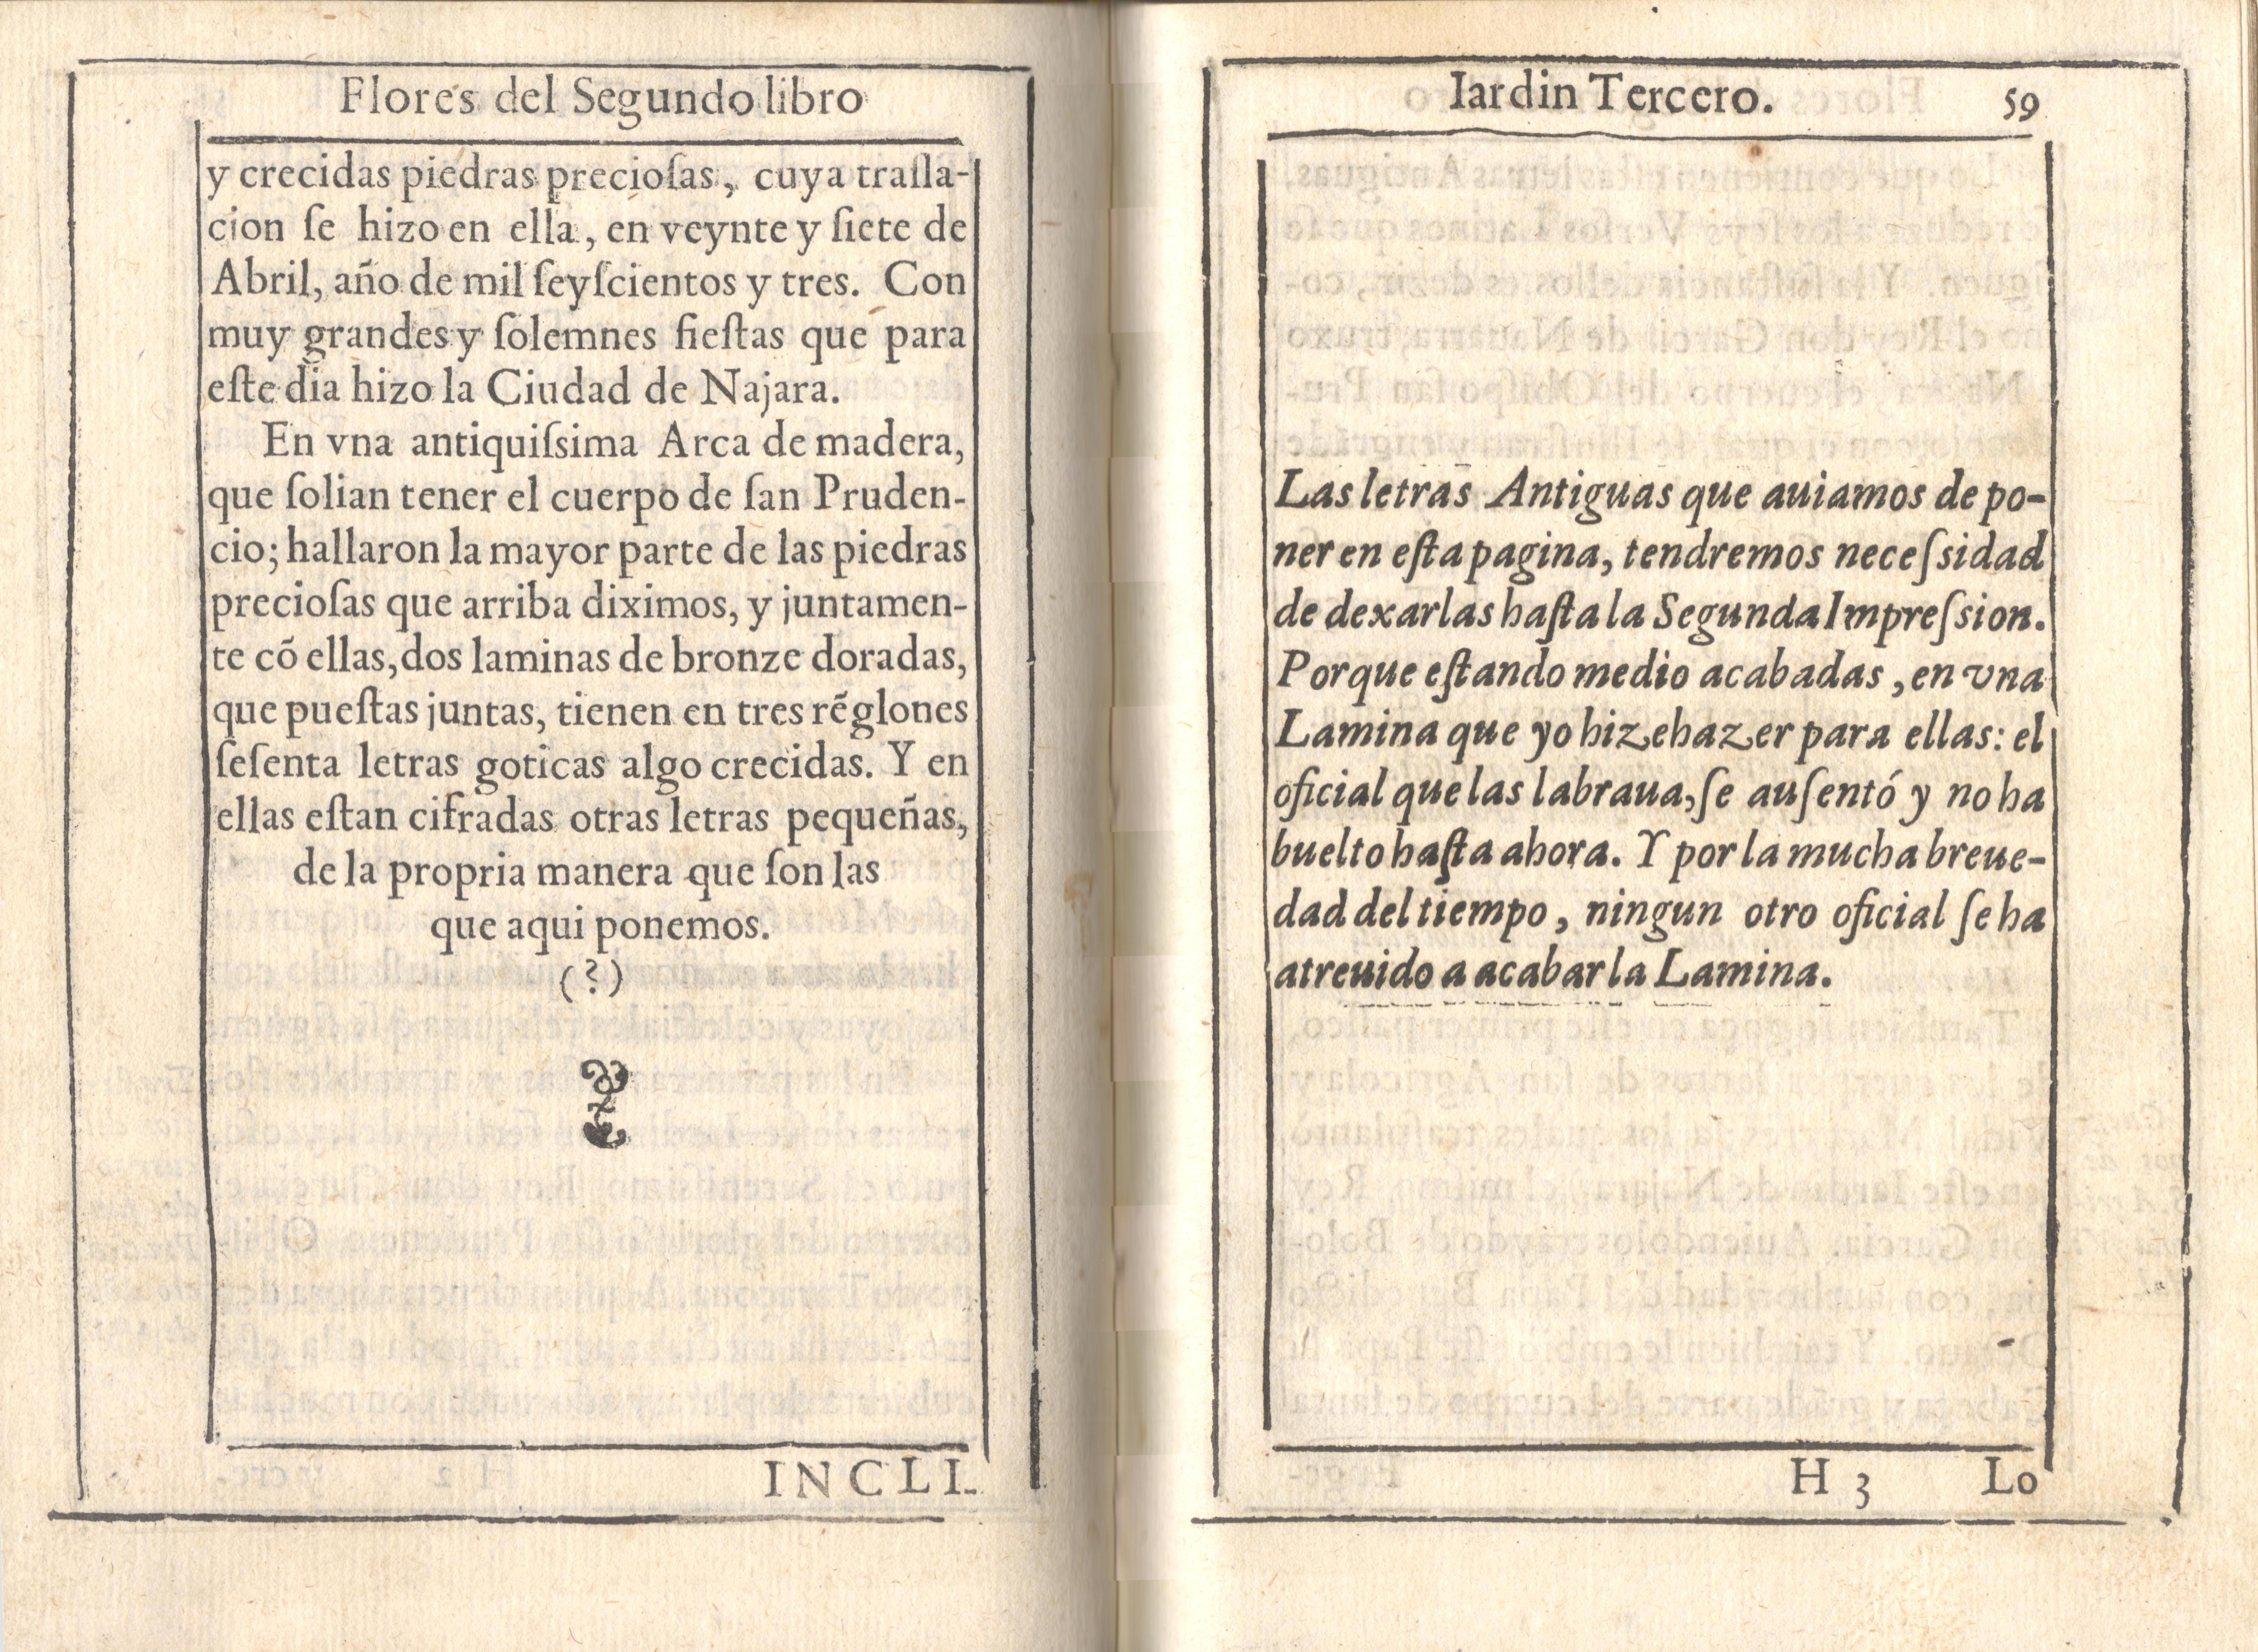 Flores del Segundo libro
y crecidas piedras precioſas, cuya traſla-
cion ſe hizo en ella, en veynte y ſiete de
Abril, año de mil ſeyſcientos y tres. Con
muy grandes y ſolemnes fieſtas que para
eſte dia hizo la Ciudad de Najara.
En vna antiquiſsima Arca de madera,
que ſolian tener el cuerpo de ſan Pruden-
cio; hallaron la mayor parte de las piedras
precioſas que arriba diximos, y juntamen-
te cõ ellas, dos laminas de bronze doradas,
que pueſtas juntas, tienen en tres rẽglones
ſeſenta letras goticas algo crecidas. Y en
ellas eſtan cifradas otras letras pequeñas,
de la propria manera que ſon las
que aqui ponemos.
(?)
INCLI-
Iardin Tercero. 59
Las letras Antiguas que auiamos de po-
ner en eſta pagina, tendremos neceſsidad
de dexarlas haſta la Segunda Impreſsion.
Porque eſtando medio acabadas, en vna
Lamina que yo hize hazer para ellas: el
oficial que las labraua, ſe auſentó y no ha
buelto haſta ahora. Y por la mucha breue-
dad del tiempo, ningun otro oficial ſe ha
atreuido a acabar la Lamina.
H 3 Lo